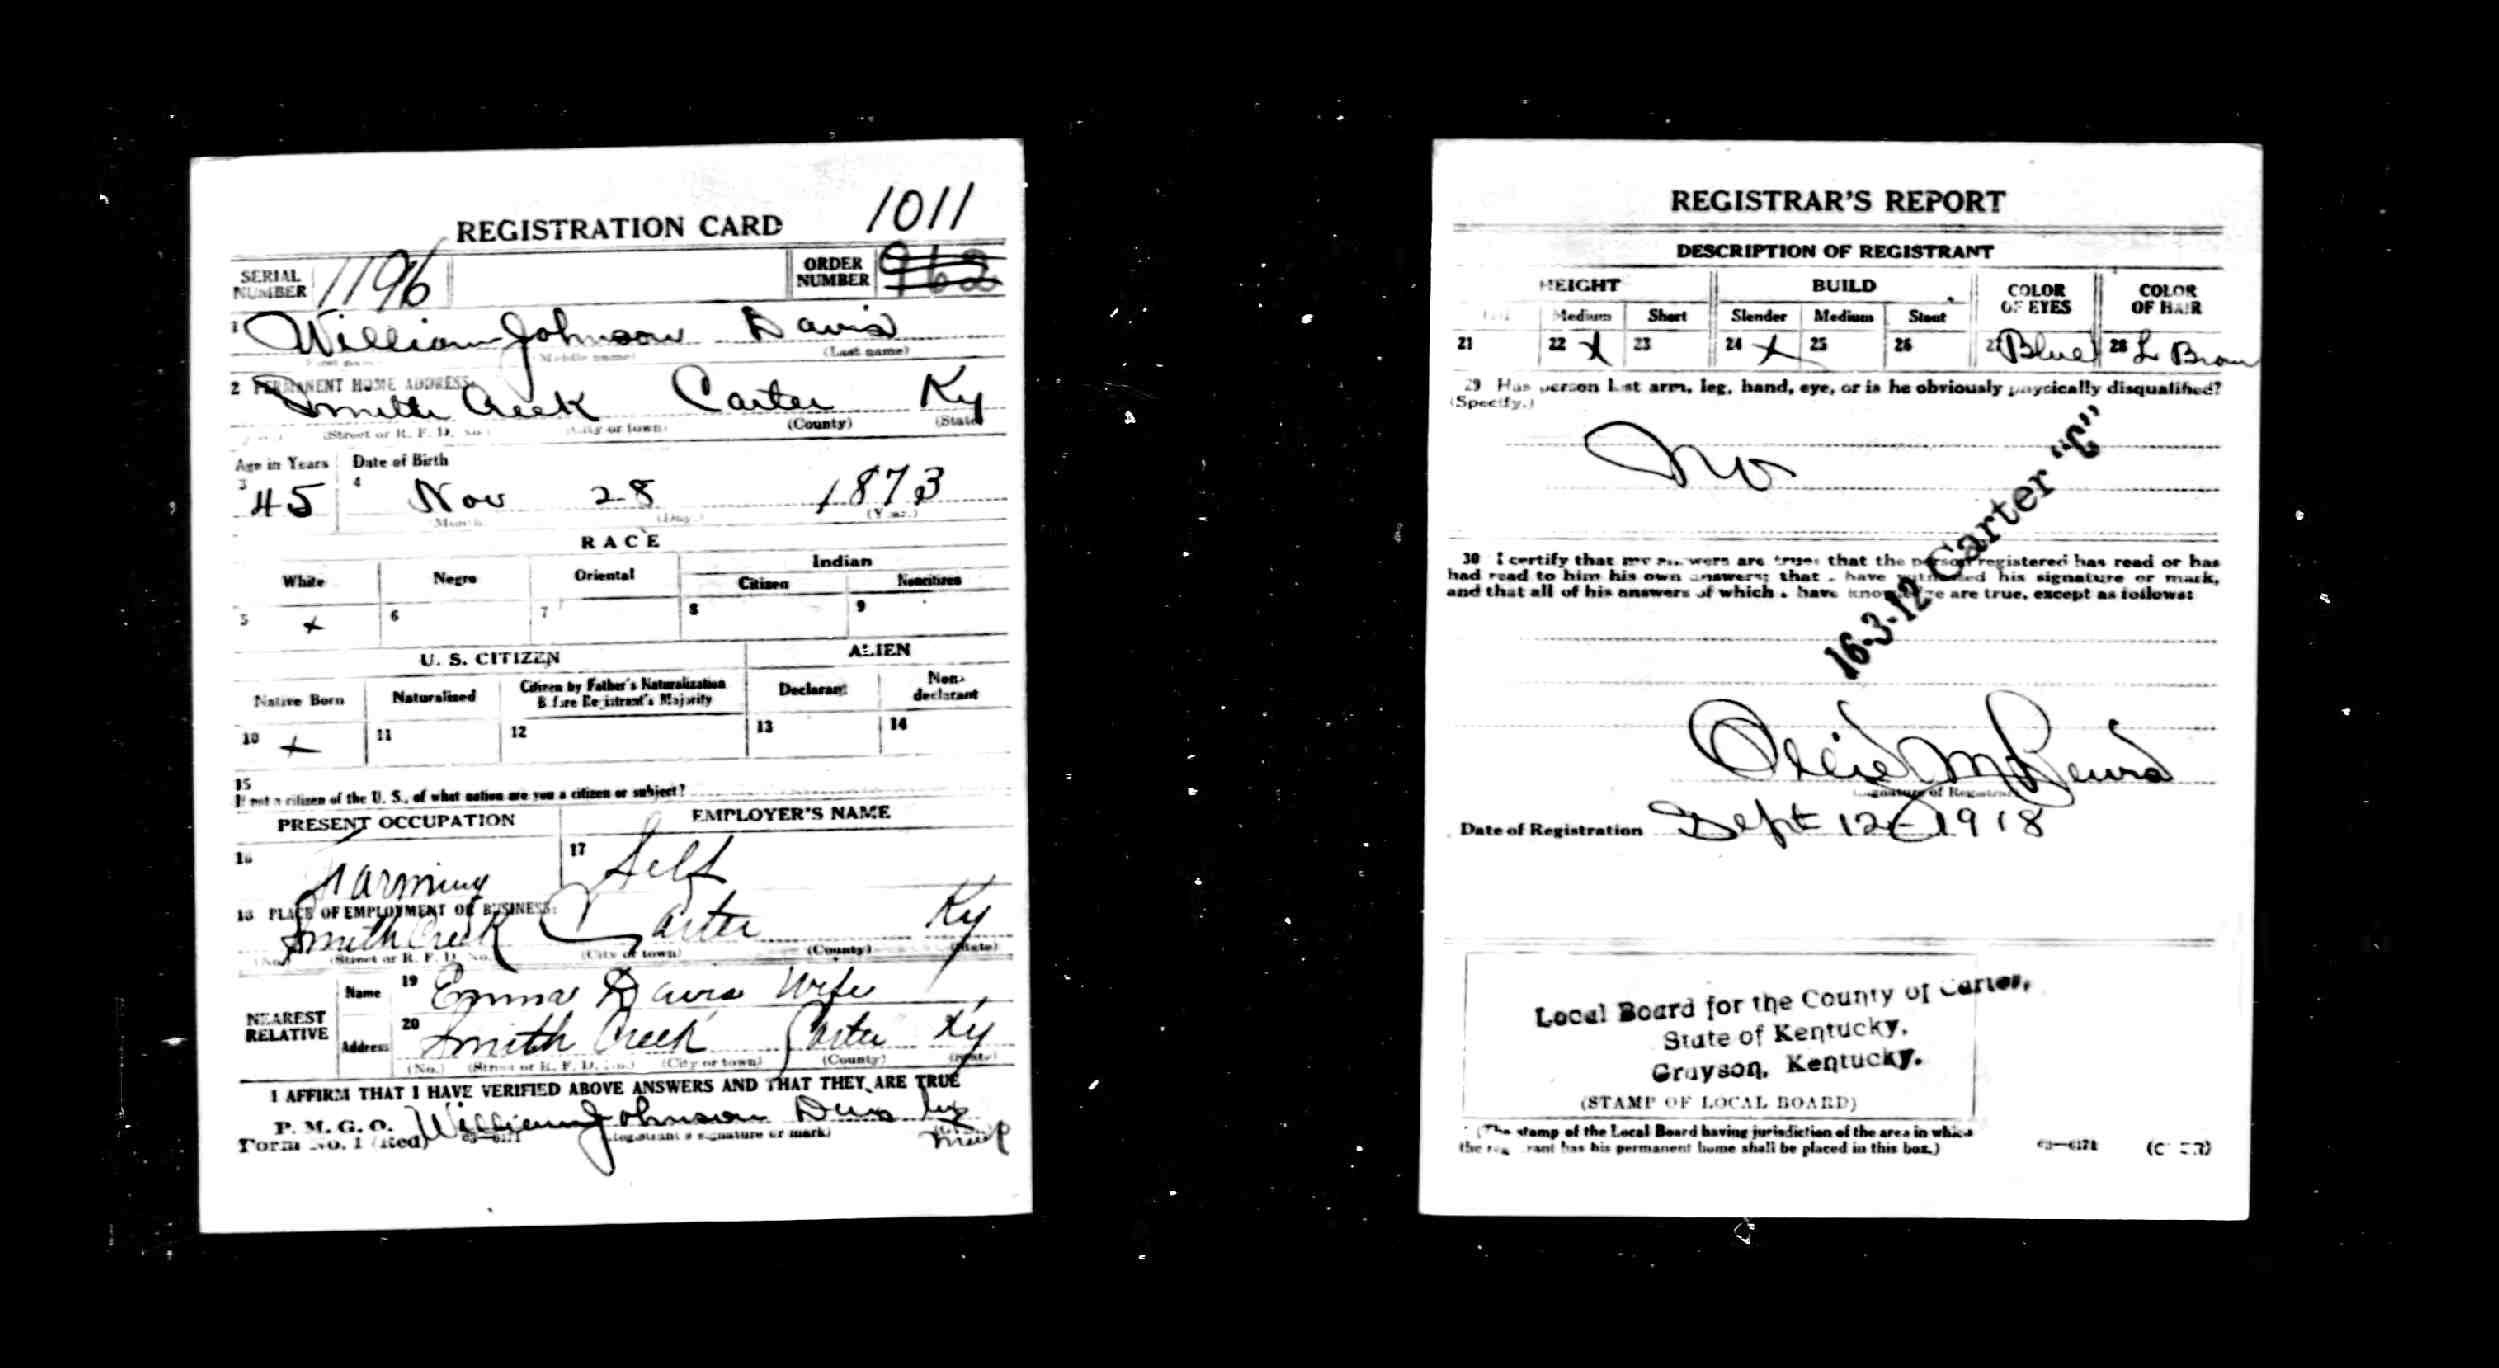 1011
REGISTRATION CARD
SERIAL NUMBER 1196 ORDER NUMBER 962
1 William Johnson Davis
(Middle name) (Last name)
2 PERMANENT HOME ADDRESS:
Smith Creek Carter Ky
(Street or R. F. D. No.) (City or town) (County) (State)
Age in Years Date of Birth
3 45 4 Nov 28 1873
(Month) (Day.) (Year.)
RACE
White Negro Oriental Indian
Citizen Noncitizen
5 x 6 7 8 9
U. S. CITIZEN ALIEN
Native Born Naturalized Citizen by Father's Naturalization Before Registrant's Majority Declarant Non-declarant
10 x 11 12 13 14
15
If not a citizen of the U. S., of what nation are you a citizen or subject?
PRESENT OCCUPATION EMPLOYER'S NAME
16 Farming 17 Self
18 PLACE OF EMPLOYMENT OR BUSINESS:
Smith Creek Carter Ky
(No.) (Street or R. F. D. No.) (City or town) (County) (State)
NEAREST RELATIVE
Name 19 Emma Davis Wife
Address 20 Smith Creek Carter Ky
(No.) (Street or R. F. D. No.) (City or town) (County) (State)
I AFFIRM THAT I HAVE VERIFIED ABOVE ANSWERS AND THAT THEY ARE TRUE
P. M. G. O.
Form No. 1 (Red) William Johnson Davis his mark
(Registrant's signature or mark)
REGISTRAR'S REPORT
DESCRIPTION OF REGISTRANT
HEIGHT BUILD COLOR OF EYES COLOR OF HAIR
Medium Short Slender Medium Stout
21 22 x 23 24 x 25 26 27 Blue 28 L Brown
29 Has person lost arm, leg, hand, eye, or is he obviously physically disqualified?
(Specify.)
No
30 I certify that my answers are true; that the person registered has read or has
had read to him his own answers; that I have witnessed his signature or mark,
and that all of his answers of which I have knowledge are true, except as follows:
16-3-12 Carter "C"
(Signature of Registrar)
Date of Registration Sept 12 - 1918
Local Board for the County of Carter,
State of Kentucky,
Grayson, Kentucky.
(STAMP OF LOCAL BOARD)
(The stamp of the Local Board having jurisdiction of the area in which
the registrant has his permanent home shall be placed in this box.)
03—6171